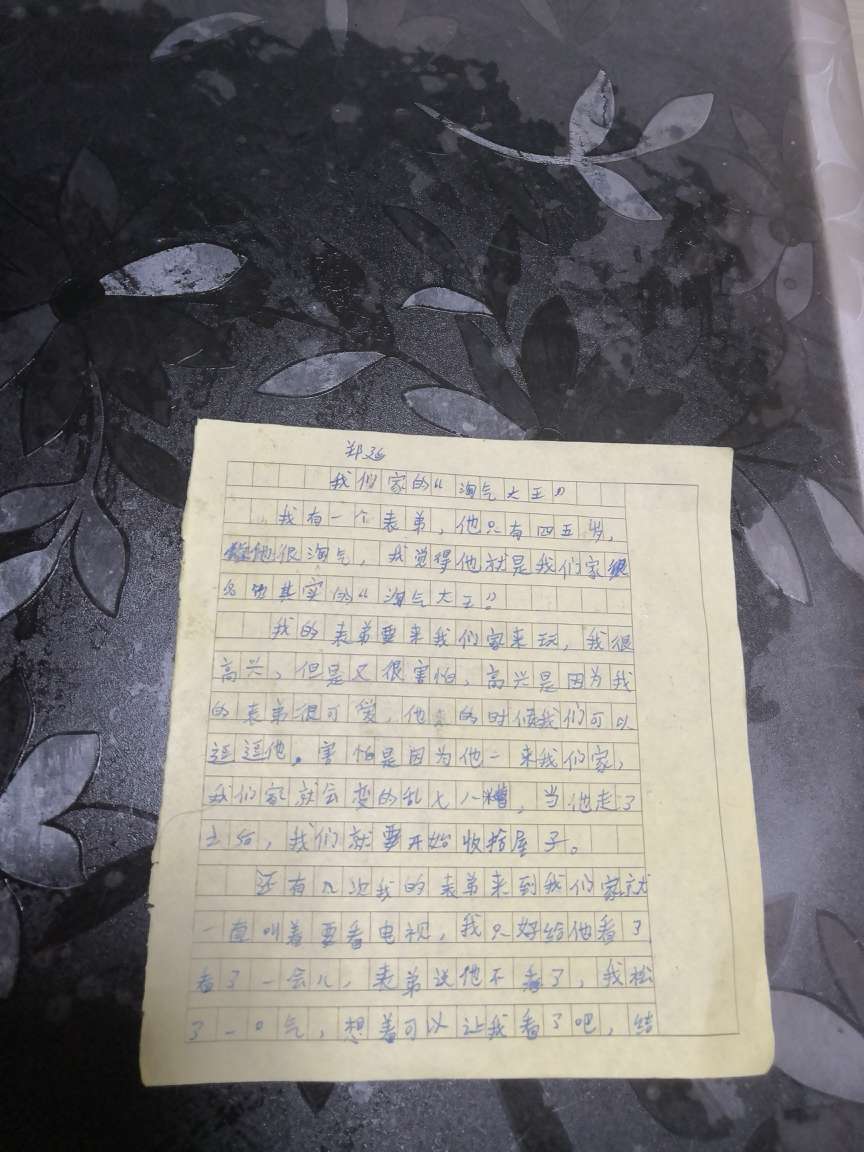 郑
我们家的“淘气大王”
我有一个表弟，他只有四五岁，
他很淘气，我觉得他就是我们家
名也其实的“淘气大王”
我的表弟要来我们家来玩，我很
高兴，但是又很害怕，高兴是因为我
的表弟很可爱，他来的时候我们可以
逗逗他。害怕是因为他一来我们家，
我们家就会变的乱七八糟，当他走了
后，我们就要开始收拾屋子。
还有几次我的表弟来到我们家就
一直叫着要看电视，我只好给他看了
看了一会儿，表弟说他不看了，我松
了一口气，想着可以让我看了吧，结